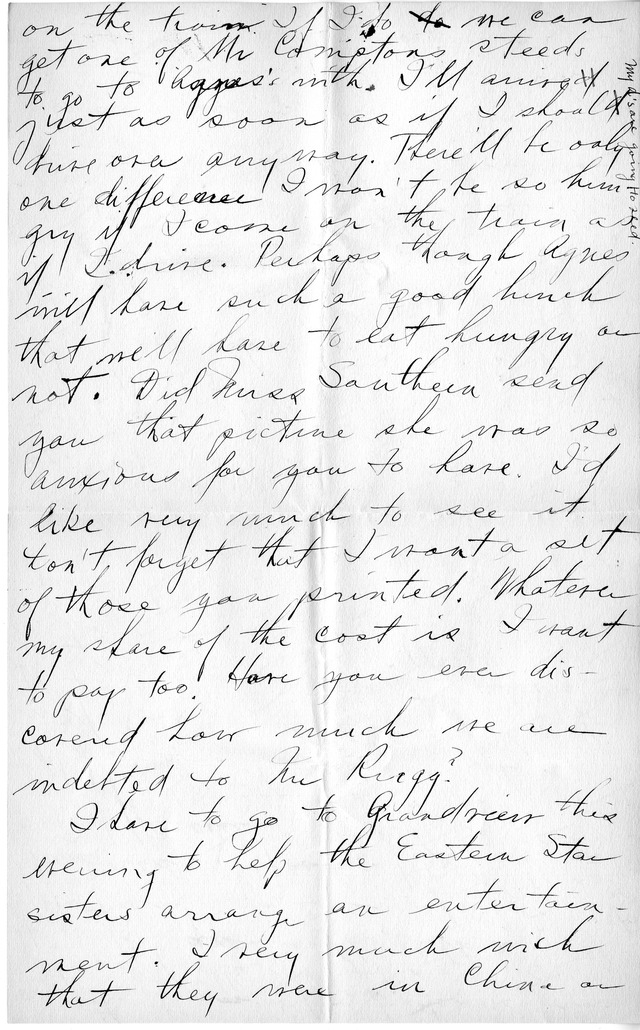 on the train. If I do we can
get one of Mr Comptons steeds
to go to Agnes's with. I'll arrive
just as soon as if I should
drive over anyway. There'll be only
one difference I won't be so hun
gry if I come on the train as
if I drive. Perhaps though Agnes
will have such a good lunch
that we'll have to eat hungry or
not. Did Miss Southern send
you that picture she was so
anxious for you to have. I'd
like very much to see it
Don't forget that I want a set
of those you printed. Whatever
my share of the cost is I want
to pay too. Have you ever dis-
covered how much we are
indebted to Mr Rugg?
I have to go to Grandview this
evening to help the Eastern Star
sisters arrange an entertain-
ment. I very much wish
that they were in China or
My is are going to bed.